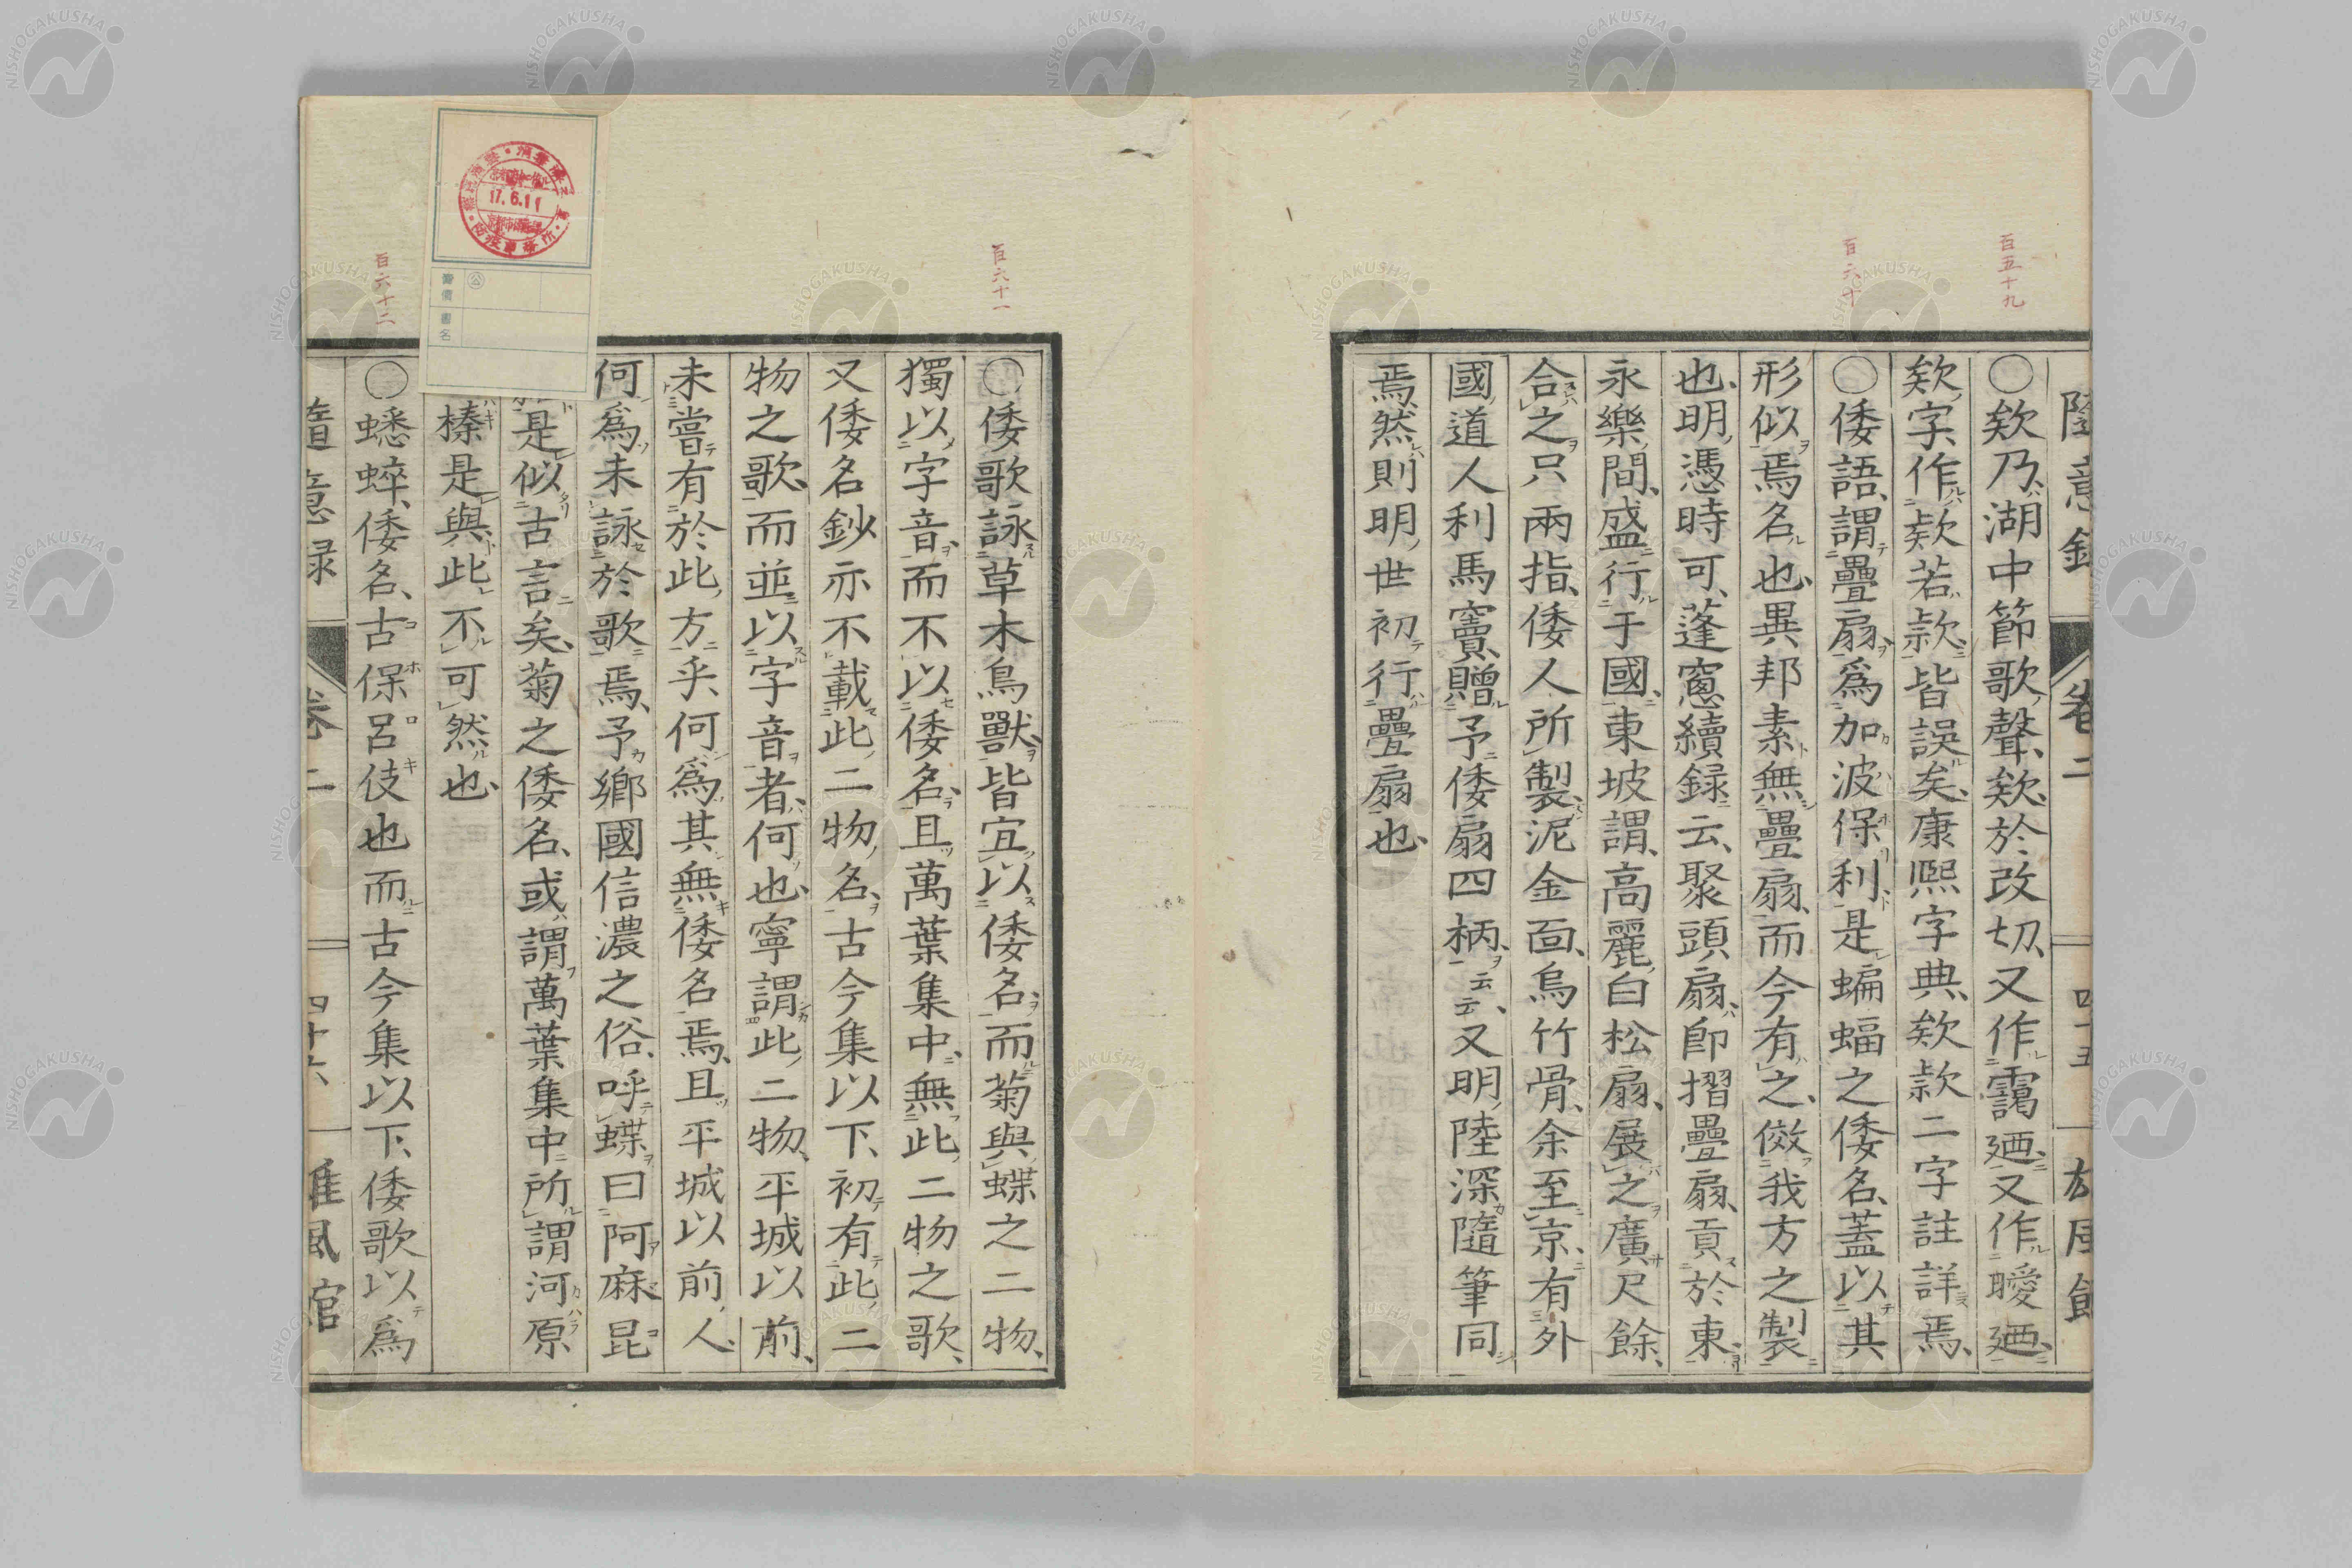 百五十九
百六十
隨意錄
卷二
四十五
〇欸乃、湖中節歌聲、欸、於改切、又作靄廼、又作曖廼、
欸字、作欵若款、皆誤矣、康熙字典、欸款二字註詳焉、
〇倭語、謂疊扇、爲加波保利、是蝙蝠之倭名、蓋以其
形似焉名也、異邦素無疊扇、而今有之、傚我方之製
也、明馮時可、蓬窓續録云、聚頭扇、卽摺疊扇、貢於東、
永樂間、盛行于國、東坡謂、高麗白松扇、展之廣尺餘、
合之只兩指、倭人所製、泥金面、烏竹骨、余至京、有外
國道人利馬竇、贈予倭扇四柄、云云、又明陸深隨筆同
焉、然則明世初行疊扇也、
百六十一
百六十二
〇倭歌詠草木鳥獸、皆宜以倭名、而菊與蝶之二物、
獨以字音、而不以倭名、且萬葉集中、無此二物之歌、
又倭名鈔亦不載此二物名、古今集以下、初有此二
物之歌、而並以字音者、何也、寧謂此二物、平城以前、
未嘗有於此方乎、何爲其無倭名焉、且平城以前人、
何爲未詠於歌焉、予鄉國信濃之俗、呼蝶曰阿麻昆
是似古言矣、菊之倭名、或謂萬葉集中所謂河原
榛是與、此不可然也、
〇蟋蟀、倭名、古保呂伎也、而古今集以下、倭歌以爲
隨意録
卷二
四十六
17.6.11